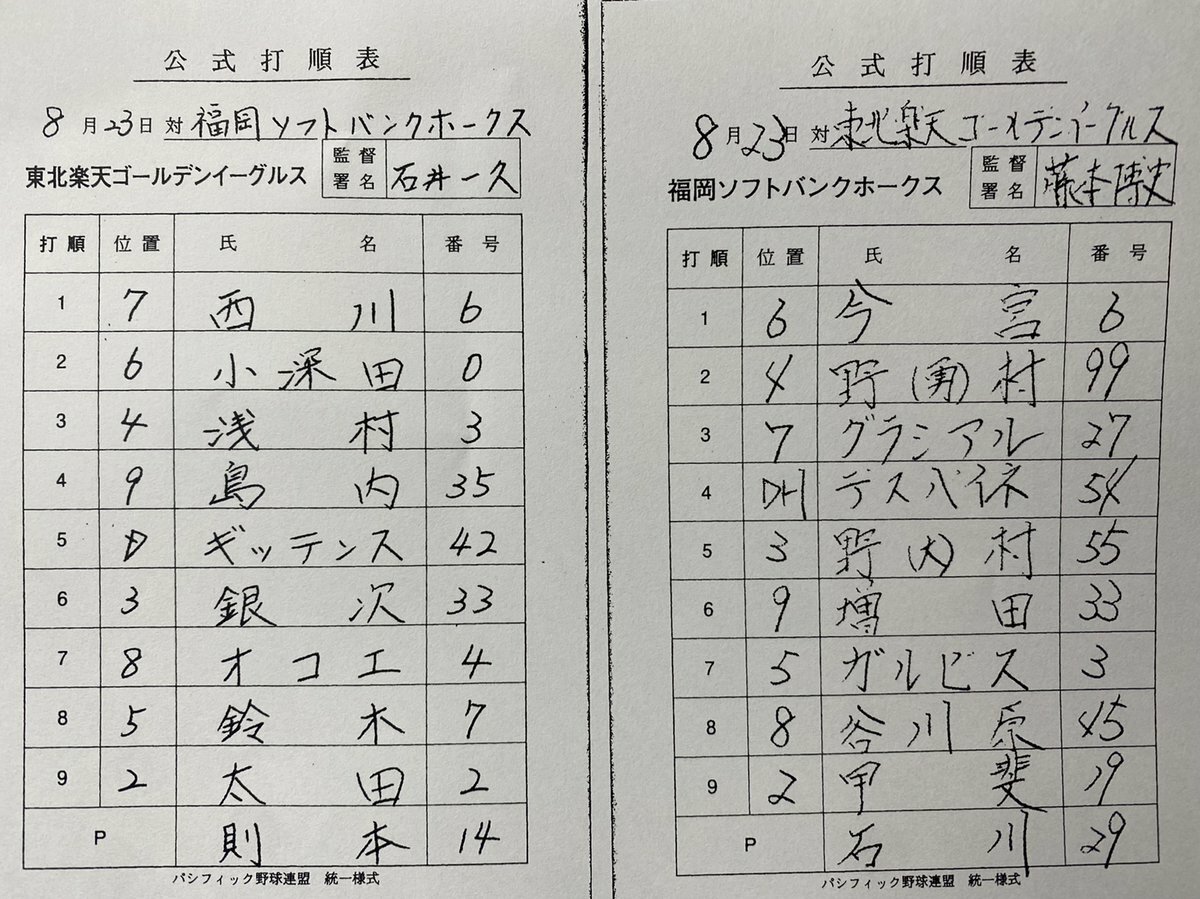 公式打順表
8月23日 対 福岡ソフトバンクホークス
東北楽天ゴールデンイーグルス 監督署名 石井一久
打順 位置 氏名 番号
1 7 西川 6
2 6 小深田 0
3 4 浅村 3
4 9 島内 35
5 D ギッテンス 42
6 3 銀次 33
7 8 オコエ 4
8 5 鈴木 7
9 2 太田 2
P 則本 14
パシフィック野球連盟 統一様式
公式打順表
8月23日 対 東北楽天ゴールデンイーグルス
福岡ソフトバンクホークス 監督署名 藤本博史
打順 位置 氏名 番号
1 6 今宮 6
2 4 野(勇)村 99
3 7 グラシアル 27
4 DH デスパイネ 54
5 3 野(大)村 55
6 9 増田 33
7 5 ガルビス 3
8 8 谷川原 45
9 2 甲斐 19
P 石川 29
パシフィック野球連盟 統一様式